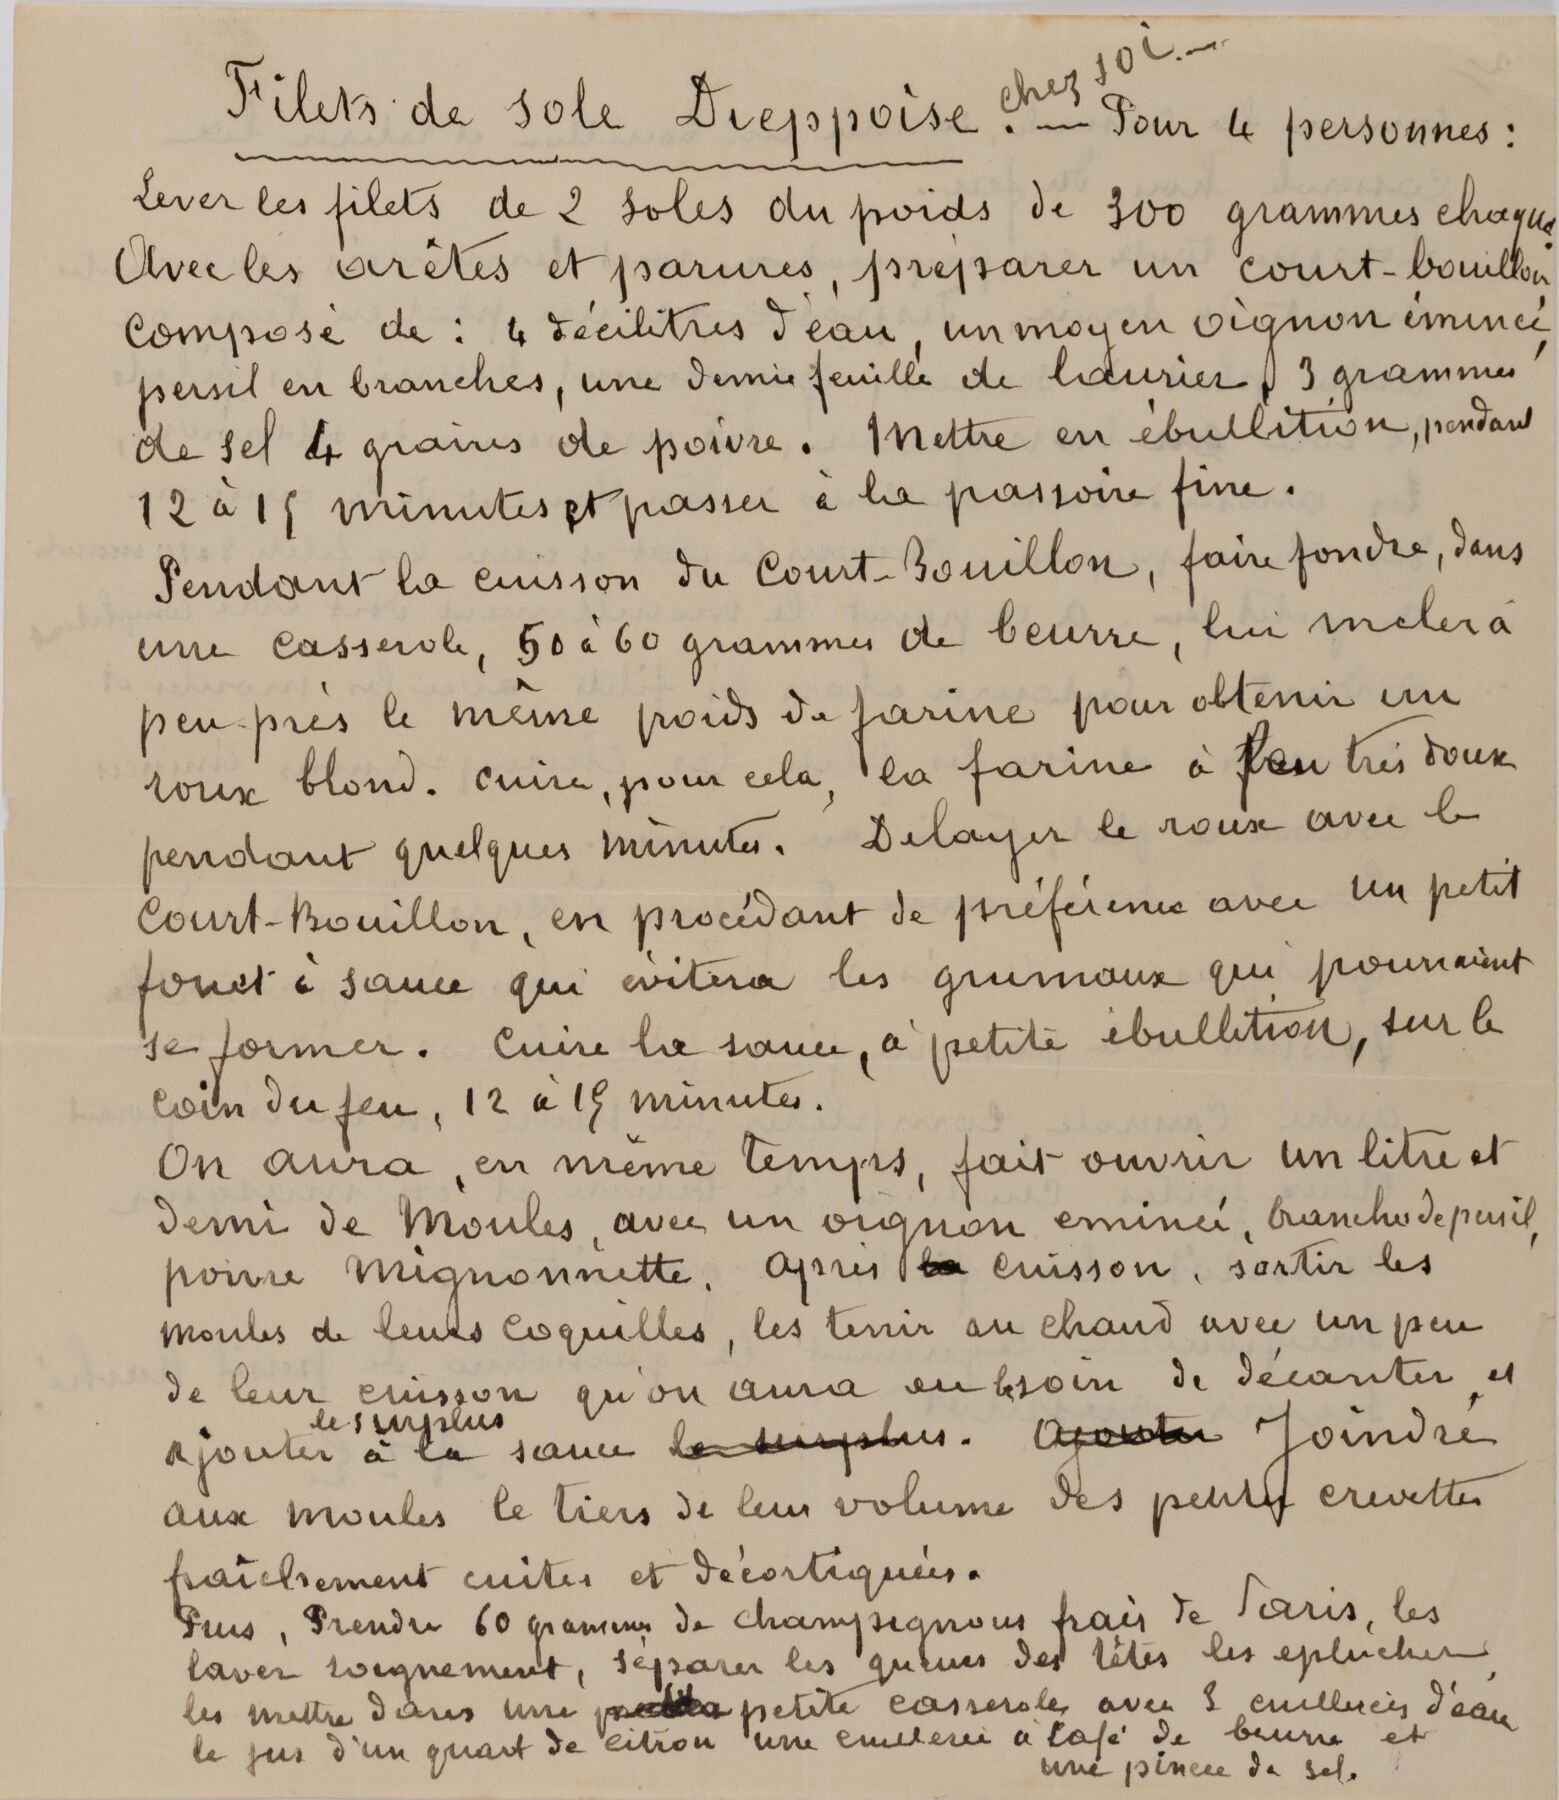 Filets de sole Dieppoise. chez soi. — Pour 4 personnes :
Lever les filets de 2 soles du poids de 300 grammes chaque.
Avec les arêtes et parures, préparer un court-bouillon
composé de : 4 décilitres d'eau, un moyen oignon émincé,
persil en branches, une demie feuille de laurier, 3 grammes
de sel 4 grains de poivre. Mettre en ébullition, pendant
12 à 15 minutes et passer à la passoire fine.
Pendant la cuisson du Court-Bouillon, faire fondre, dans
une casserole, 50 à 60 grammes de beurre, lui meler à
peu-près le même poids de farine pour obtenir un
roux blond. cuire, pour cela, la farine à feu très doux
pendant quelques minutes. Delayer le roux avec le
Court-Bouillon, en procédant de préférence avec un petit
fouet à sauce qui évitera les grumaux qui pourraient
se former. Cuire la sauce, à petite ébullition, sur le
coin du feu, 12 à 15 minutes.
On aura, en même temps, fait ouvrir un litre et
demi de Moules, avec un oignon emincé, branches de persil,
poivre mignonnette. Après la cuisson, sortir les
moules de leurs coquilles, les tenir au chaud avec un peu
de leur cuisson qu'on aura eu soin de décanter et
ajouter le surplus à la sauce le surplus. Ajouter Joindre
aux moules le tiers de leur volume des petites crevettes
fraîchement cuites et décortiquées.
Puis, Prendre 60 grammes de champignons frais de Paris, les
laver soignement, séparer les queues des têtes les eplucher,
les mettre dans une petite petite casserole avec 3 cuillerées d'eau
le jus d'un quart de citron une cuillerée à café de beurre et
une pincée de sel.